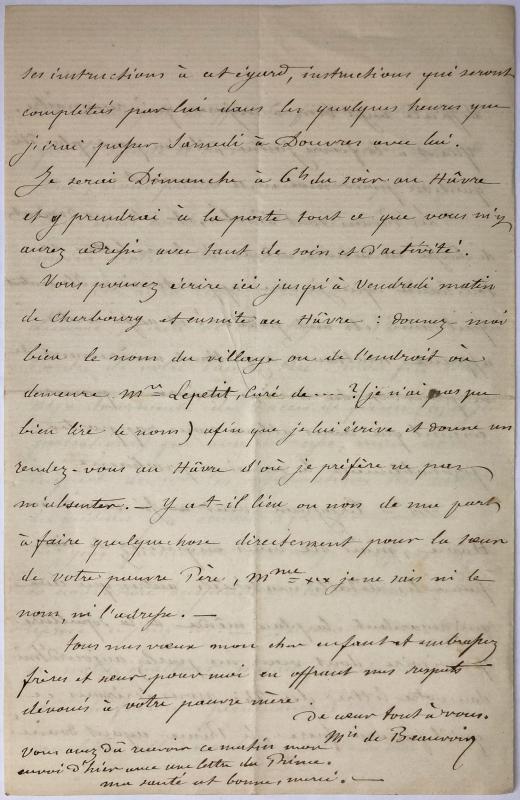 ses instructions à cet égard, instructions qui seront
complétées par lui dans les quelques heures que
j'irai passer Samedi à Douvres avec lui.
Je serai Dimanche à 6h du soir au Hâvre
et y prendrai à la poste tout ce que vous m'y
aurez adressé avec tant de soin et d'activité.
Vous pouvez écrire ici jusqu'à Vendredi matin
de Cherbourg et ensuite au Hâvre : donnez moi
bien le nom du village ou de l'endroit où
demeure Mr Lepetit, Curé de ---- ? (je n'ai pas pu
bien lire le nom) afin que je lui écrive et donne un
rendez-vous au Hâvre d'où je préfère ne pas
m'absenter. — Y a-t-il lieu ou non de ma part
à faire quelque chose directement pour la sœur
de votre pauvre Père, Mme xxx je ne sais ni le
nom, ni l'adresse. —
Tous mes vœux mon cher enfant et embrassez
frères et sœur pour moi en offrant mes respects
dévoués à votre pauvre mère.
De cœur tout à vous.
Mis de Beauvoir
Vous avez dû recevoir ce matin mon
envoi d'hier avec une lettre du Prince.
ma santé est bonne, merci. —